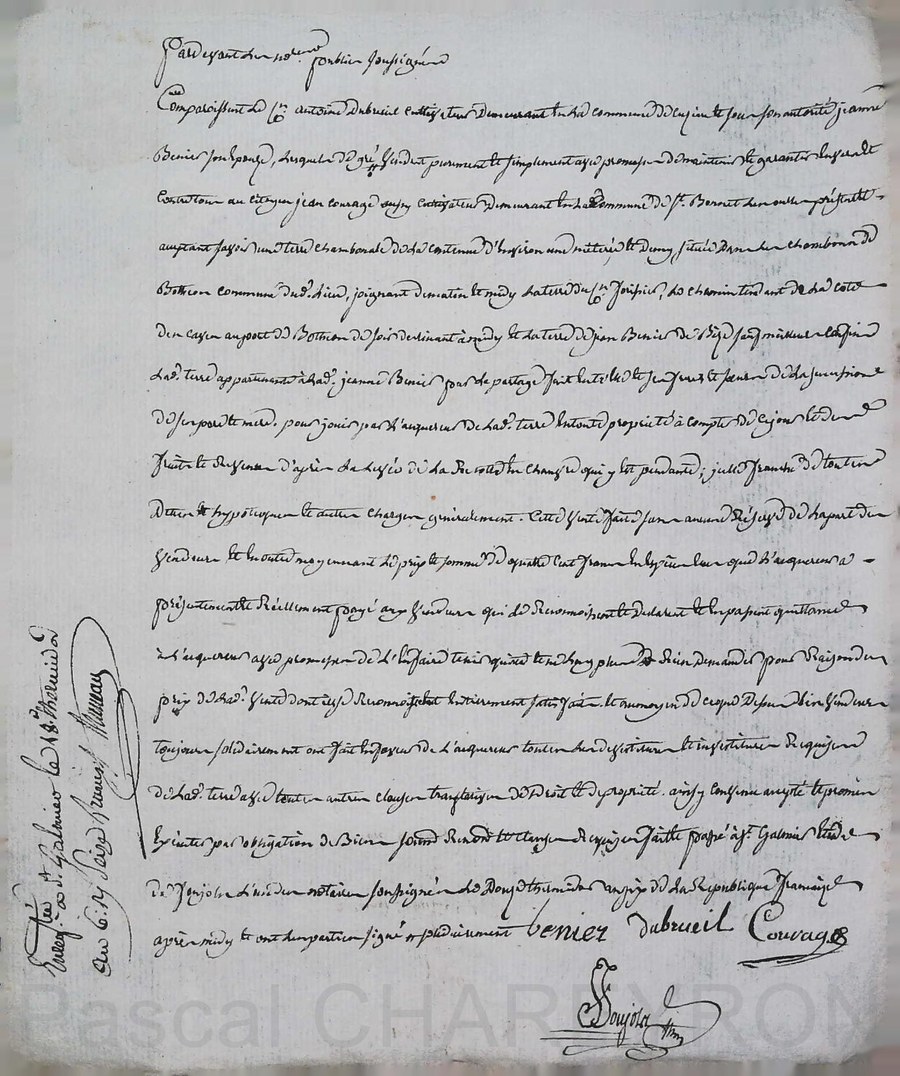 Pardevant les no.res publics soussignés
Comparoissent le C.en antoine Dubreuil cultivateur demeurant en la commune de Cuzieu et sous son autorité jeanne
Benier son Epouse, lesquels de gré vendent purement et simplement avec promesse de maintenir et garantir envers et
Contre tous au citoyen jean couvage aussy cultivateur demeurant en la Commune de St. Bonnet les oulles présent et
acceptant savoir une terre chambonale de la contenue d'environ une métérée et demy, située dans les chambons de
Bothéon commune dud. lieu, joignant de matin et midy la terre du C.en
, le chemin tendant de la côte
au port de Bothéon de soir declinant à midy et la terre de jean Benier de Bize sauf meilleurs confins
Lad. terre appartenante à lad. jeanne Benier par le partage fait entr'elle et ses freres et soeurs de la succession
de ses pere et mere. pour jouir par l'acquereur de lad. terre en toute propriété à compter de ce jour et des
fruits et revenus d'après la levée de la Recolte en chanvre qui y est pendante; icelle franche de toutes
dettes et hypotheques et autres charges généralement. Cette vente faite sans aucune Réserve de la part des
vendeurs et en outre moyennant le prix et somme de quatre cent francs en espèces que l'acquereur a
présentement et Réellement payé aux vendeurs qui le Reconnoissent et Declarent et en passent quittance
à l'acquereur avec promesse de l'en faire tenir quitte et ne luy plus Rien demander pour Raison du
prix de lad. vente dont ils se Reconnoissent entierement satisfaits. et au moyen de ce que dessus les vendeurs
toujours solidairement ont fait en faveur de l'acquereur toutes les devestitures et investitures Requises
de lad. terre avec toutes autres clauses translatives de Droit et de propriété. ainsy convenu accepté et promis
Exécuter par obligation de Biens soumis Renonc. et clauses Requises fait et passé à St. Galmier Etude
de Ponjols l'un des notaires soussignés le Douze thermidor an six de la Republique française
après midy et ont les parties signé solidairement benier Dubreuil Couvage
Ponjols
Enreg.tré à St. Galmier le 18 Thermidor
an 6. R/ Seize francs